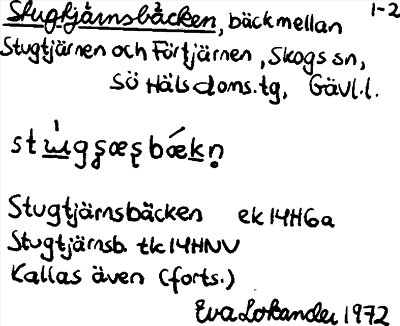 Stugtjärnsbäcken, bäck mellan 1-2
Stugtjärnen och Förtjärnen, Skogs sn,
Sö Häls doms.tg, Gävl.l.
Stugtjärnsbäcken ek 14H6a
Stugtjärnsb. tk 14HNV
Kallas även (forts.)
Eva Lokander 1972